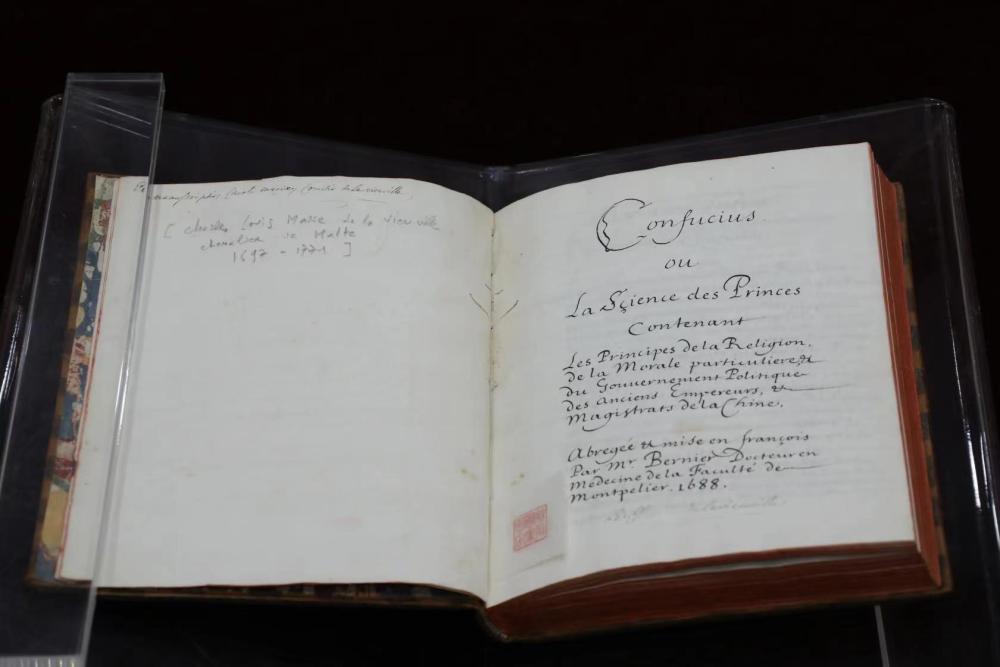 manuscriptis Caroli mariae Comitis de la vieuville,
[ Charles Louis Marie de la vieuville
chevalier de Malte
1697 - 1771 ]
Confucius
ou
La Sçience des Princes
Contenant
Les Principes de la Religion,
de la Morale particuliere, &
du Gouvernement Politique
des Anciens Empereurs, &
Magistrats de la Chine.
Abregée & mise en françois
Par Mr. Bernier Docteur en
Medecine de la Faculté de
Montpelier. 1688.